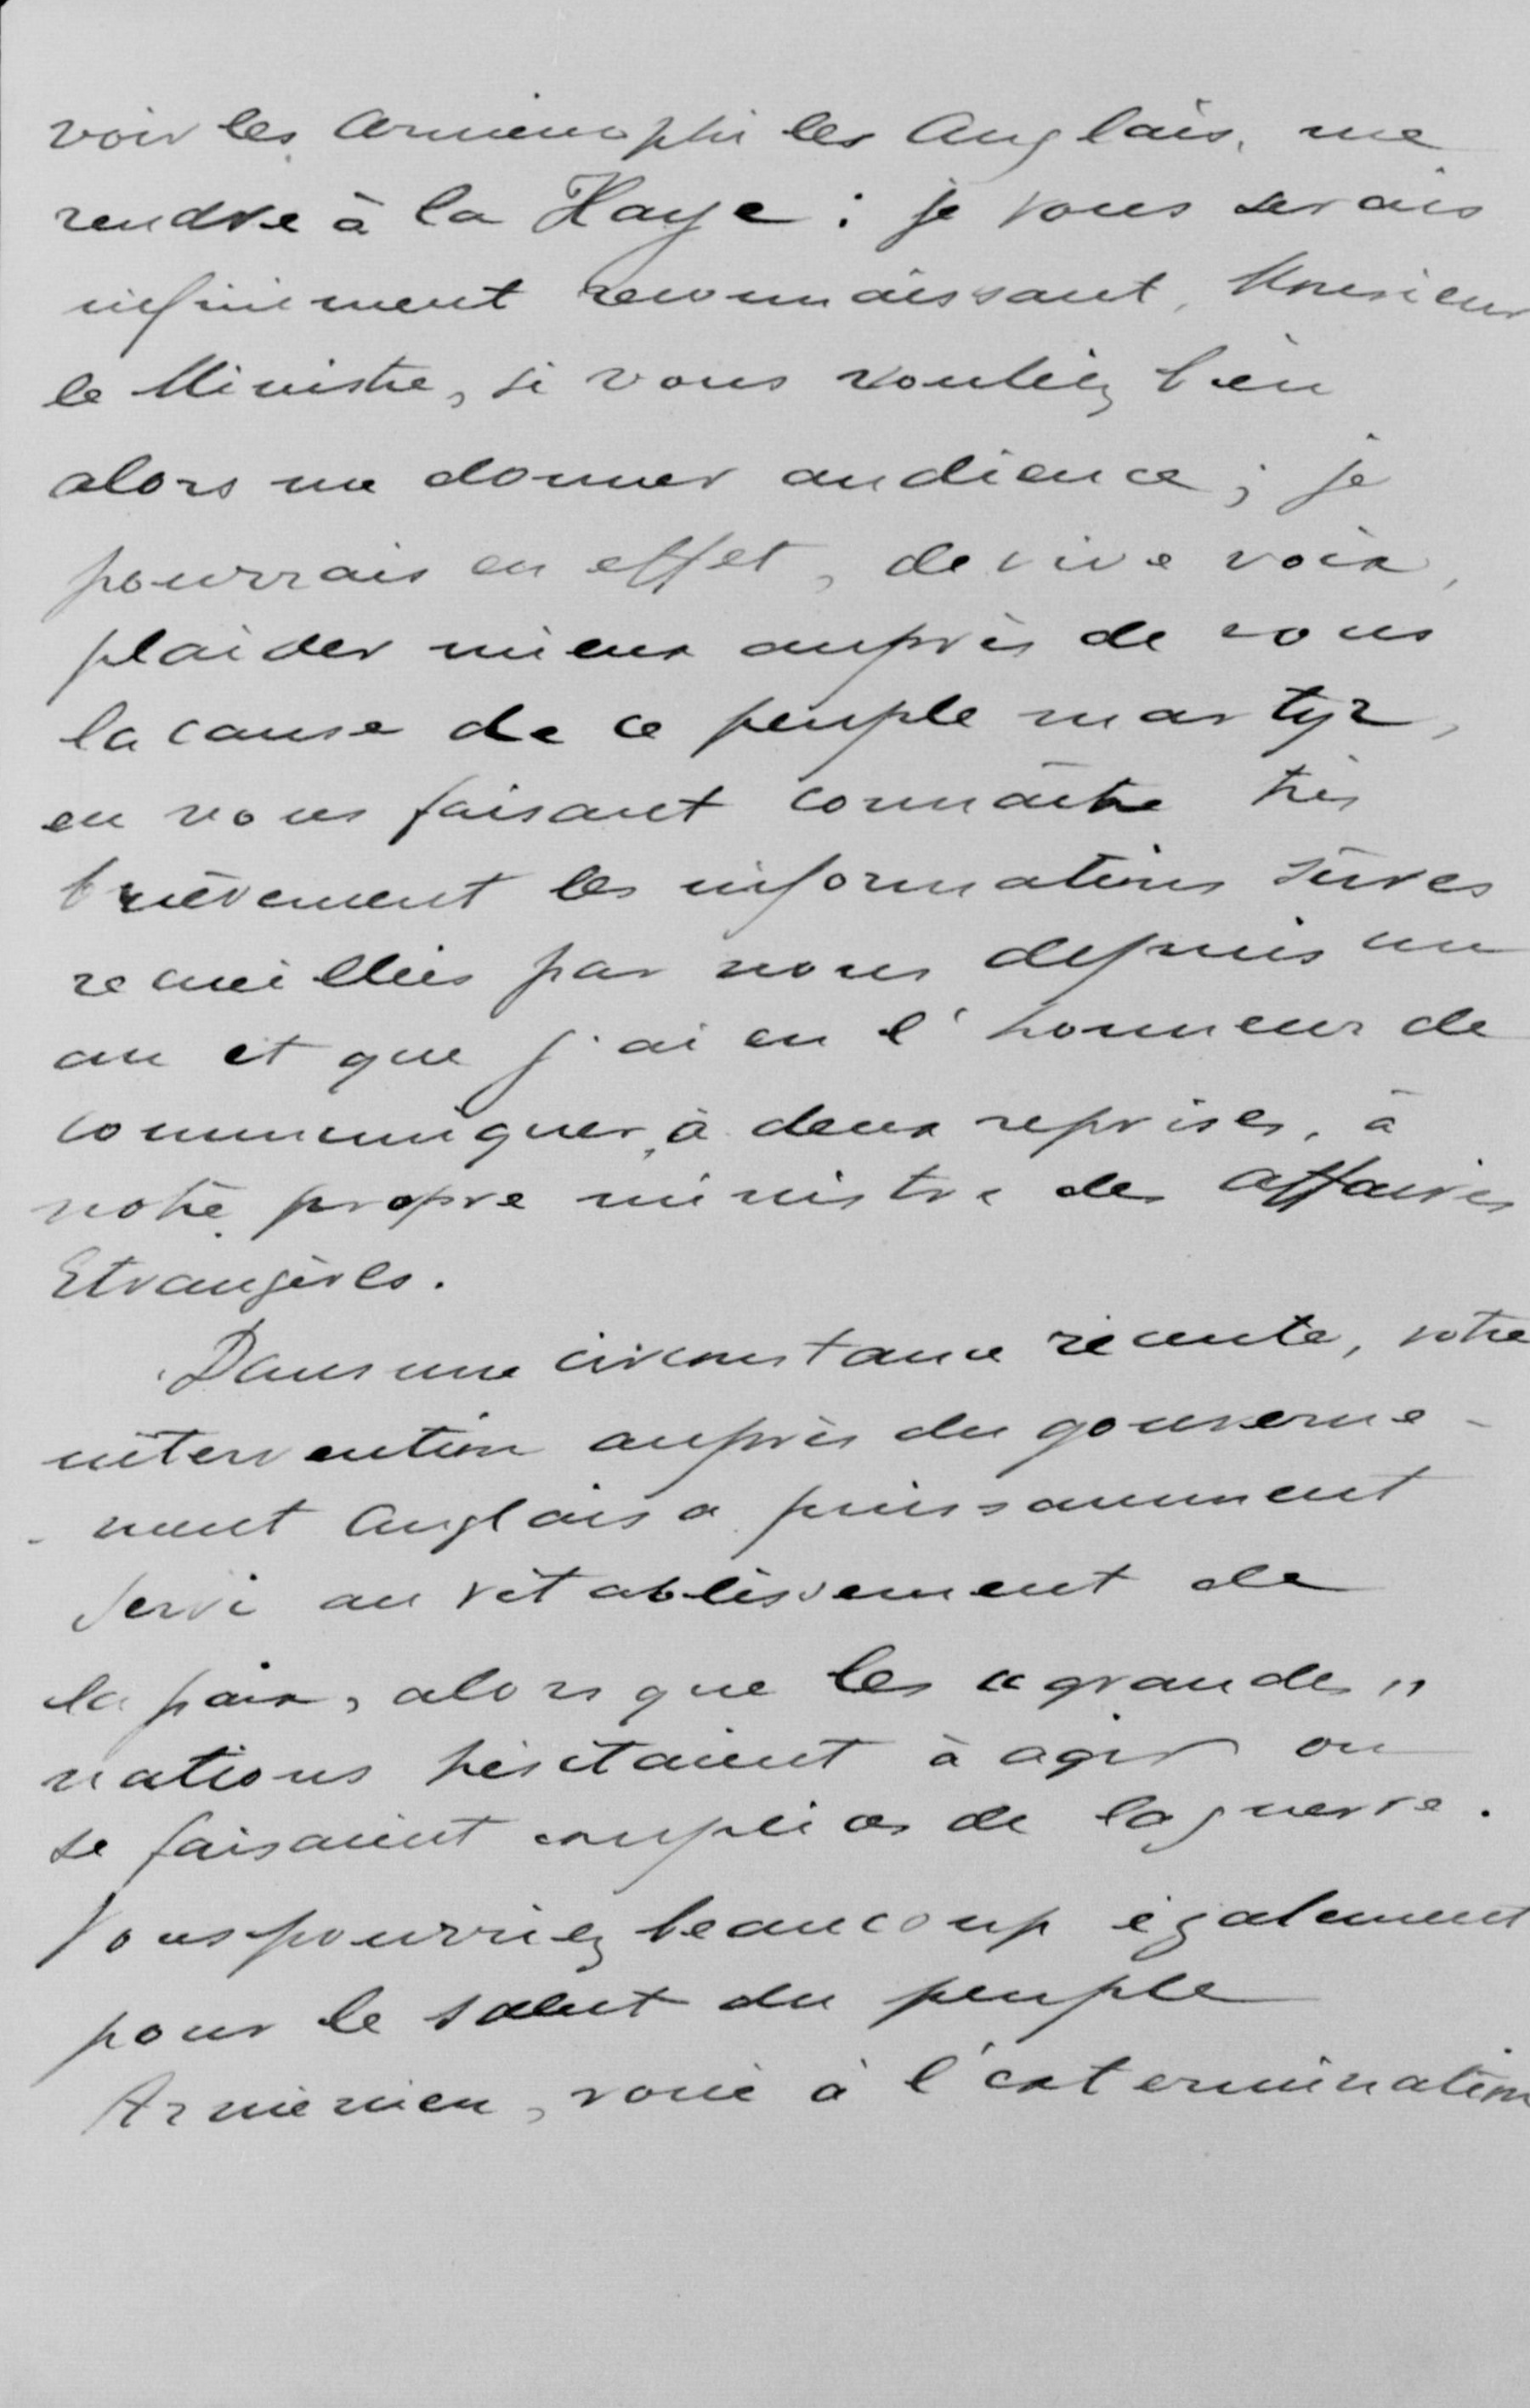 voir les Arménophiles Anglais, me
rendre à la Haye : je vous serais
infiniment reconnaissant, Monsieur
le Ministre, si vous vouliez bien
alors me donner audience ; je
pourrais en effet, de vive voix,
plaider mieux auprès de vous
la cause de ce peuple martyr,
en vous faisant connaître très
brièvement les informations sûres
recueillies par nous depuis un
an et que j'ai eu l'honneur de
communiquer, à deux reprises, à
notre propre ministre des Affaires
Etrangères.
Dans une circonstance récente, votre
intervention auprès du gouverne-
-ment Anglais a puissamment
servi au rétablissement de
la paix, alors que les "grandes"
nations hésitaient à agir ou
se faisaient complices de la guerre.
Vous pourriez beaucoup également
pour le salut du peuple
Arménien, voué à l'extermination